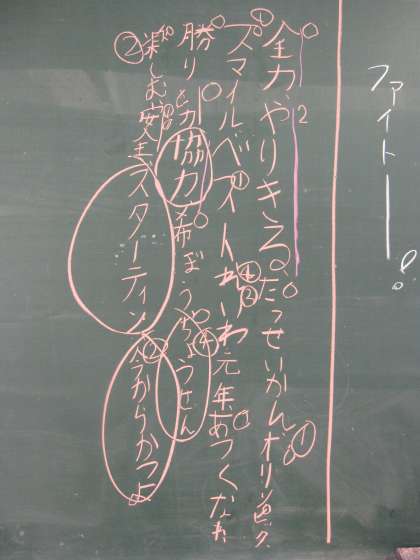 ファイトー!
全力、やりきる。たっせいかん オリンピック
スマイル ベスト れいわ元年 あつくなれ
勝り 協力 希ぼう ちょうせん
楽しむ 安全 スターティン 今からかつよ